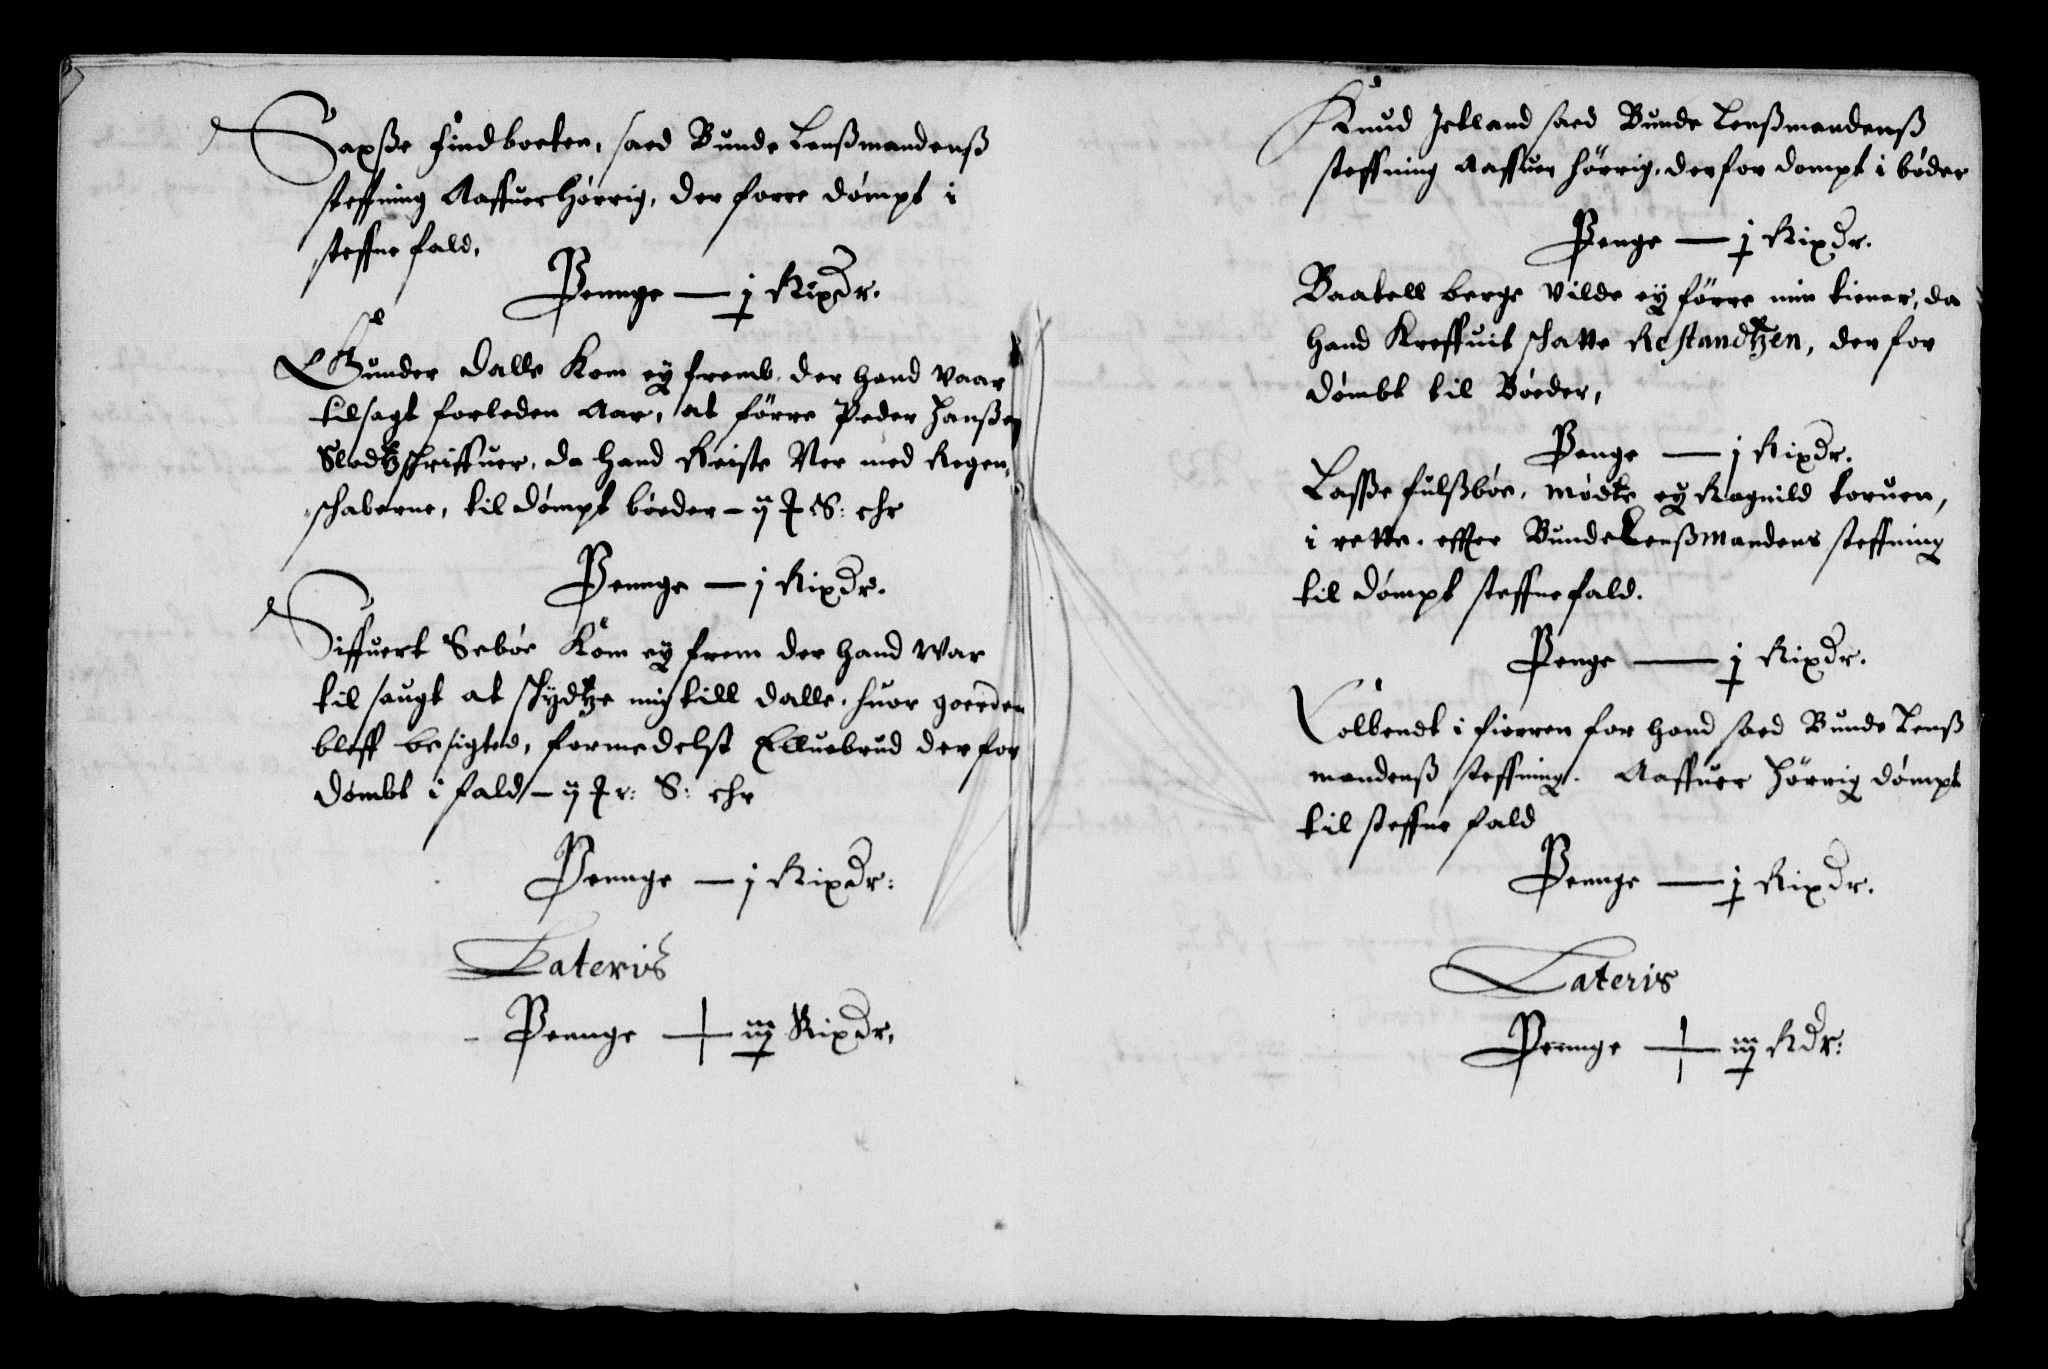 Saxsße Findboeten, saed Bunde Lenßmandenß
steffning Aaffuerhørrig, der forre dømpt i
steffne fald,
Penge — j Rixdr.
Gunder Dalle Kom ey fremb, der hand vaar
tilsagt forleden Aar, at førre Peder Hanßen
Slodtzschriffuer, da hand Reiste Ner med Regen,
schaberne, til dømpt bøeder –
Penge — j Rixdr.
Siffuert Sebøe Kom ey frem der hand War
til saugt at skydtze mig till Dalle, huor goerden
bleff besigted, formedelst Elluebrud der for
dømbt i fald –
Penge — j Rixdr:
Lateris
Penge — iij Rixdr,
Knud Jetland saed Bunde Lenßmandenß
steffning Aaffuer hørrig, der for dømpt i bøder
Penge — j Rixdr.
Baatell berge vilde ey førre min tiener, da
hand Kreffuit schatte Restandtzen, der for
dømbt til Bøeder,
Penge — j Rixdr.
Lasße fulßbøe, mødte ey Ragnild toruen,
i rette, effter Bunde Lenßmandens steffning
til dømpt steffnefald.
Penge — j Rixdr.
Colbendt i fiorren for hand saed Bunde Lenß
mandenß steffning. Aaffuer hørrig dømpt
til steffne fald
Penge — j Rixdr.
Lateris
Penge — iiij Rdr: